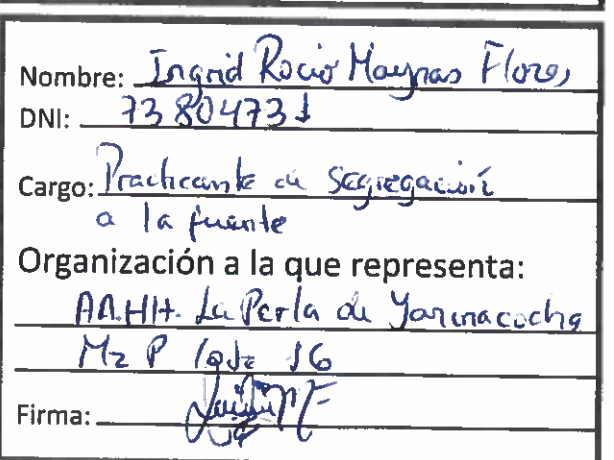 Nombre: Ingrid Rocio Maynas Flores
DNI: 73804731
Cargo: Practicante de Segregación
a la fuente
Organización a la que representa:
AA.HH. La Perla de Yarinacocha
Mz P lote 16
Firma: